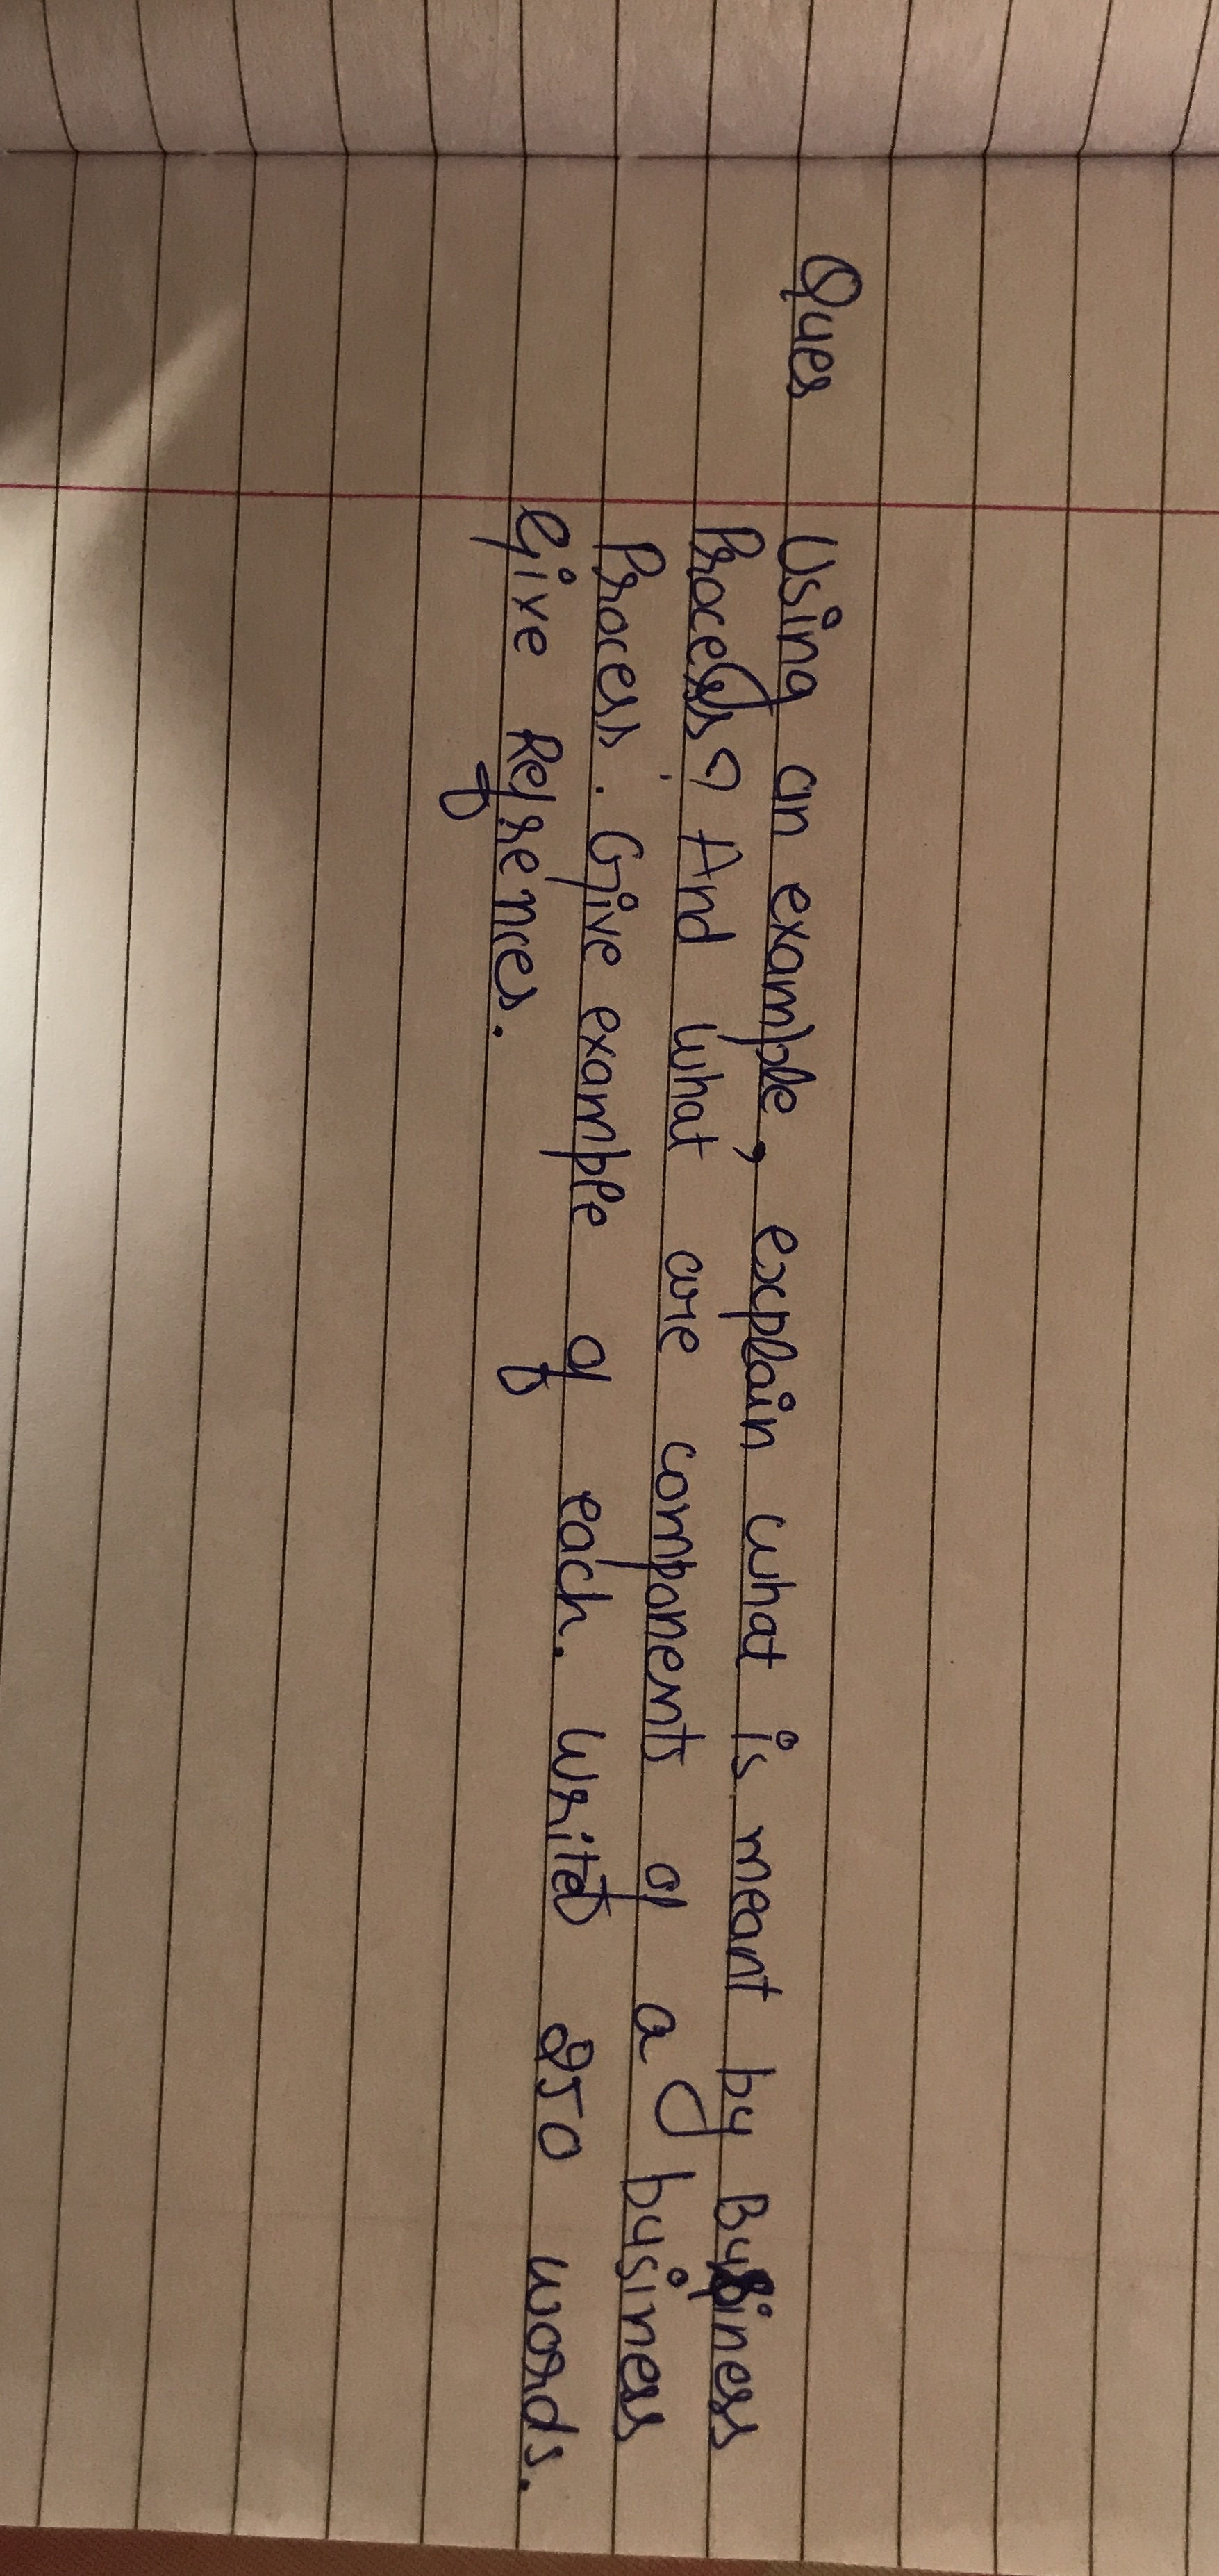 Ques Using an example, explain what is meant by Business
Process? And what are components of a business
Process. Give example of each. Write 250 words.
Give Refrences.